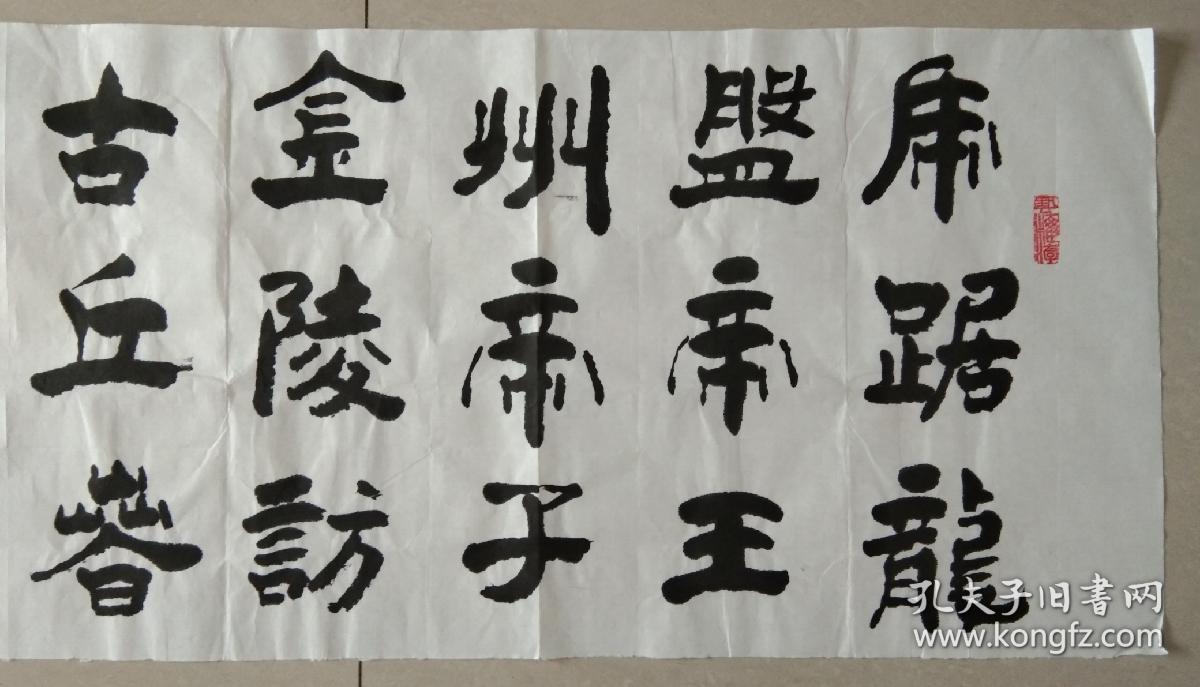 虎踞龍
盤帝王
州帝子
金陵訪
古丘春
孔夫子旧書网
www.kongfz.com